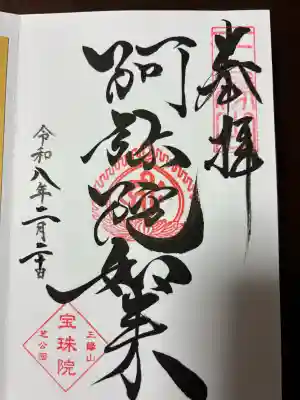 奉拝
阿弥陀如来
令和八年二月二十日
三縁山
宝珠院
芝公園